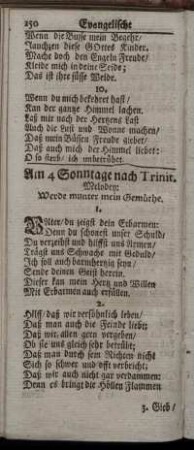 150 Evangelische
Wenn die Busse mein Begehr/
Jauchzen diese GOttes Kinder.
Mache doch den Engeln Freude/
Kleide mich in deine Seide;
Das ist ihre süsse Weide.
10.
Wenn du mich bekehret hast/
Kan der gantze Himmel lachen.
Laß mir nach der Hertzens Last
Auch die Lust und Wonne machen/
Daß mein Büssen Freude giebet/
Daß auch mich der Himmel liebet:
O so sterb/ ich unbetrübet.
Am 4 Sonntage nach Trinit.
Melodey:
Werde munter mein Gemüthe.
1.
VAter/ du zeigst dein Erbarmen:
Denn du schonest unser Schuld/
Du verzeihst und hilffst uns Armen/
Trägst uns Schwache mit Geduld/
Ich soll auch barmhertzig seyn/
Sende deinen Geist herein.
Dieser kan mein Hertz und Willen
Mit Erbarmen auch erfüllen.
2.
Hilff/ daß wir versöhnlich leben/
Daß man auch die Feinde liebt;
Daß wir allen gern vergeben/
Ob sie uns gleich sehr betrübt;
Daß man durch sein Richten nicht
Sich so schwer und offt verbricht;
Daß wir auch nicht gar verdammen:
Denn es bringt die Höllen Flammen
3. Gieb/